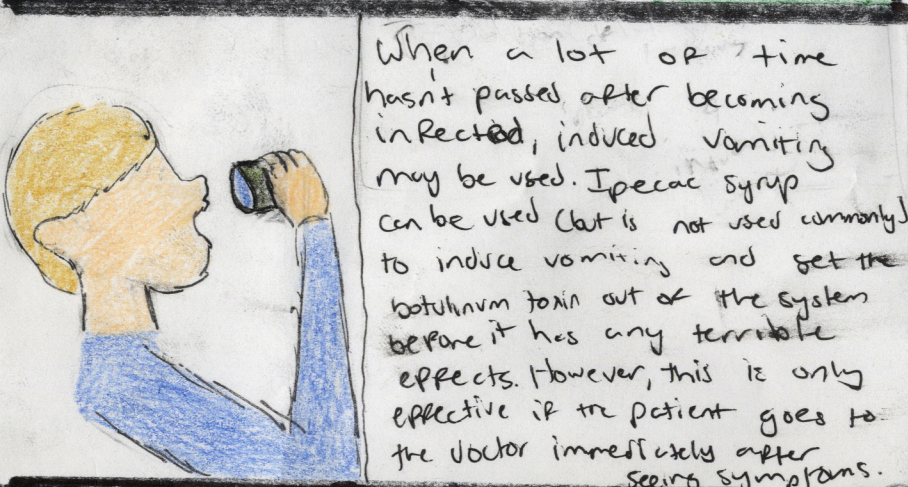 When a lot of time
hasn't passed after becoming
infected, induced vomiting
may be used. Ipecac syrup
can be used (but is not used commonly)
to induce vomiting and get the
botulinum toxin out of the system
before it has any terrible
effects. However, this is only
effective if the patient goes to
the doctor immediately after
seeing symptoms.